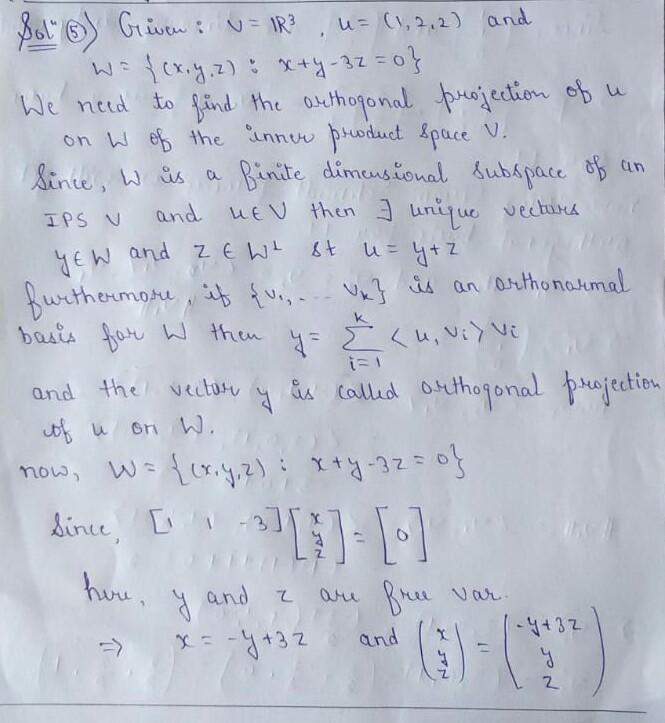 Solⁿ ⑤) Given : V = ℝ³ , u = (1,2,2) and
W = {(x,y,z) : x+y-3z = 0}
We need to find the orthogonal projection of u
on W of the inner product space V.
Since, W is a finite dimensional subspace of an
IPS V and u∈V then ∃ unique vectors
y∈W and z∈W⊥ st u = y+z
furthermore, if {v₁,... vₖ} is an orthonormal
basis for W then y = Σᵢ₌₁ᵏ <u,vᵢ> vᵢ
and the vector y is called orthogonal projection
of u on W.
now, W = {(x,y,z) : x+y-3z = 0}
Since, [1 1 -3] [x y z] = [0]
here, y and z are free var.
⇒ x = -y+3z and (x y z) = (-y+3z y z)